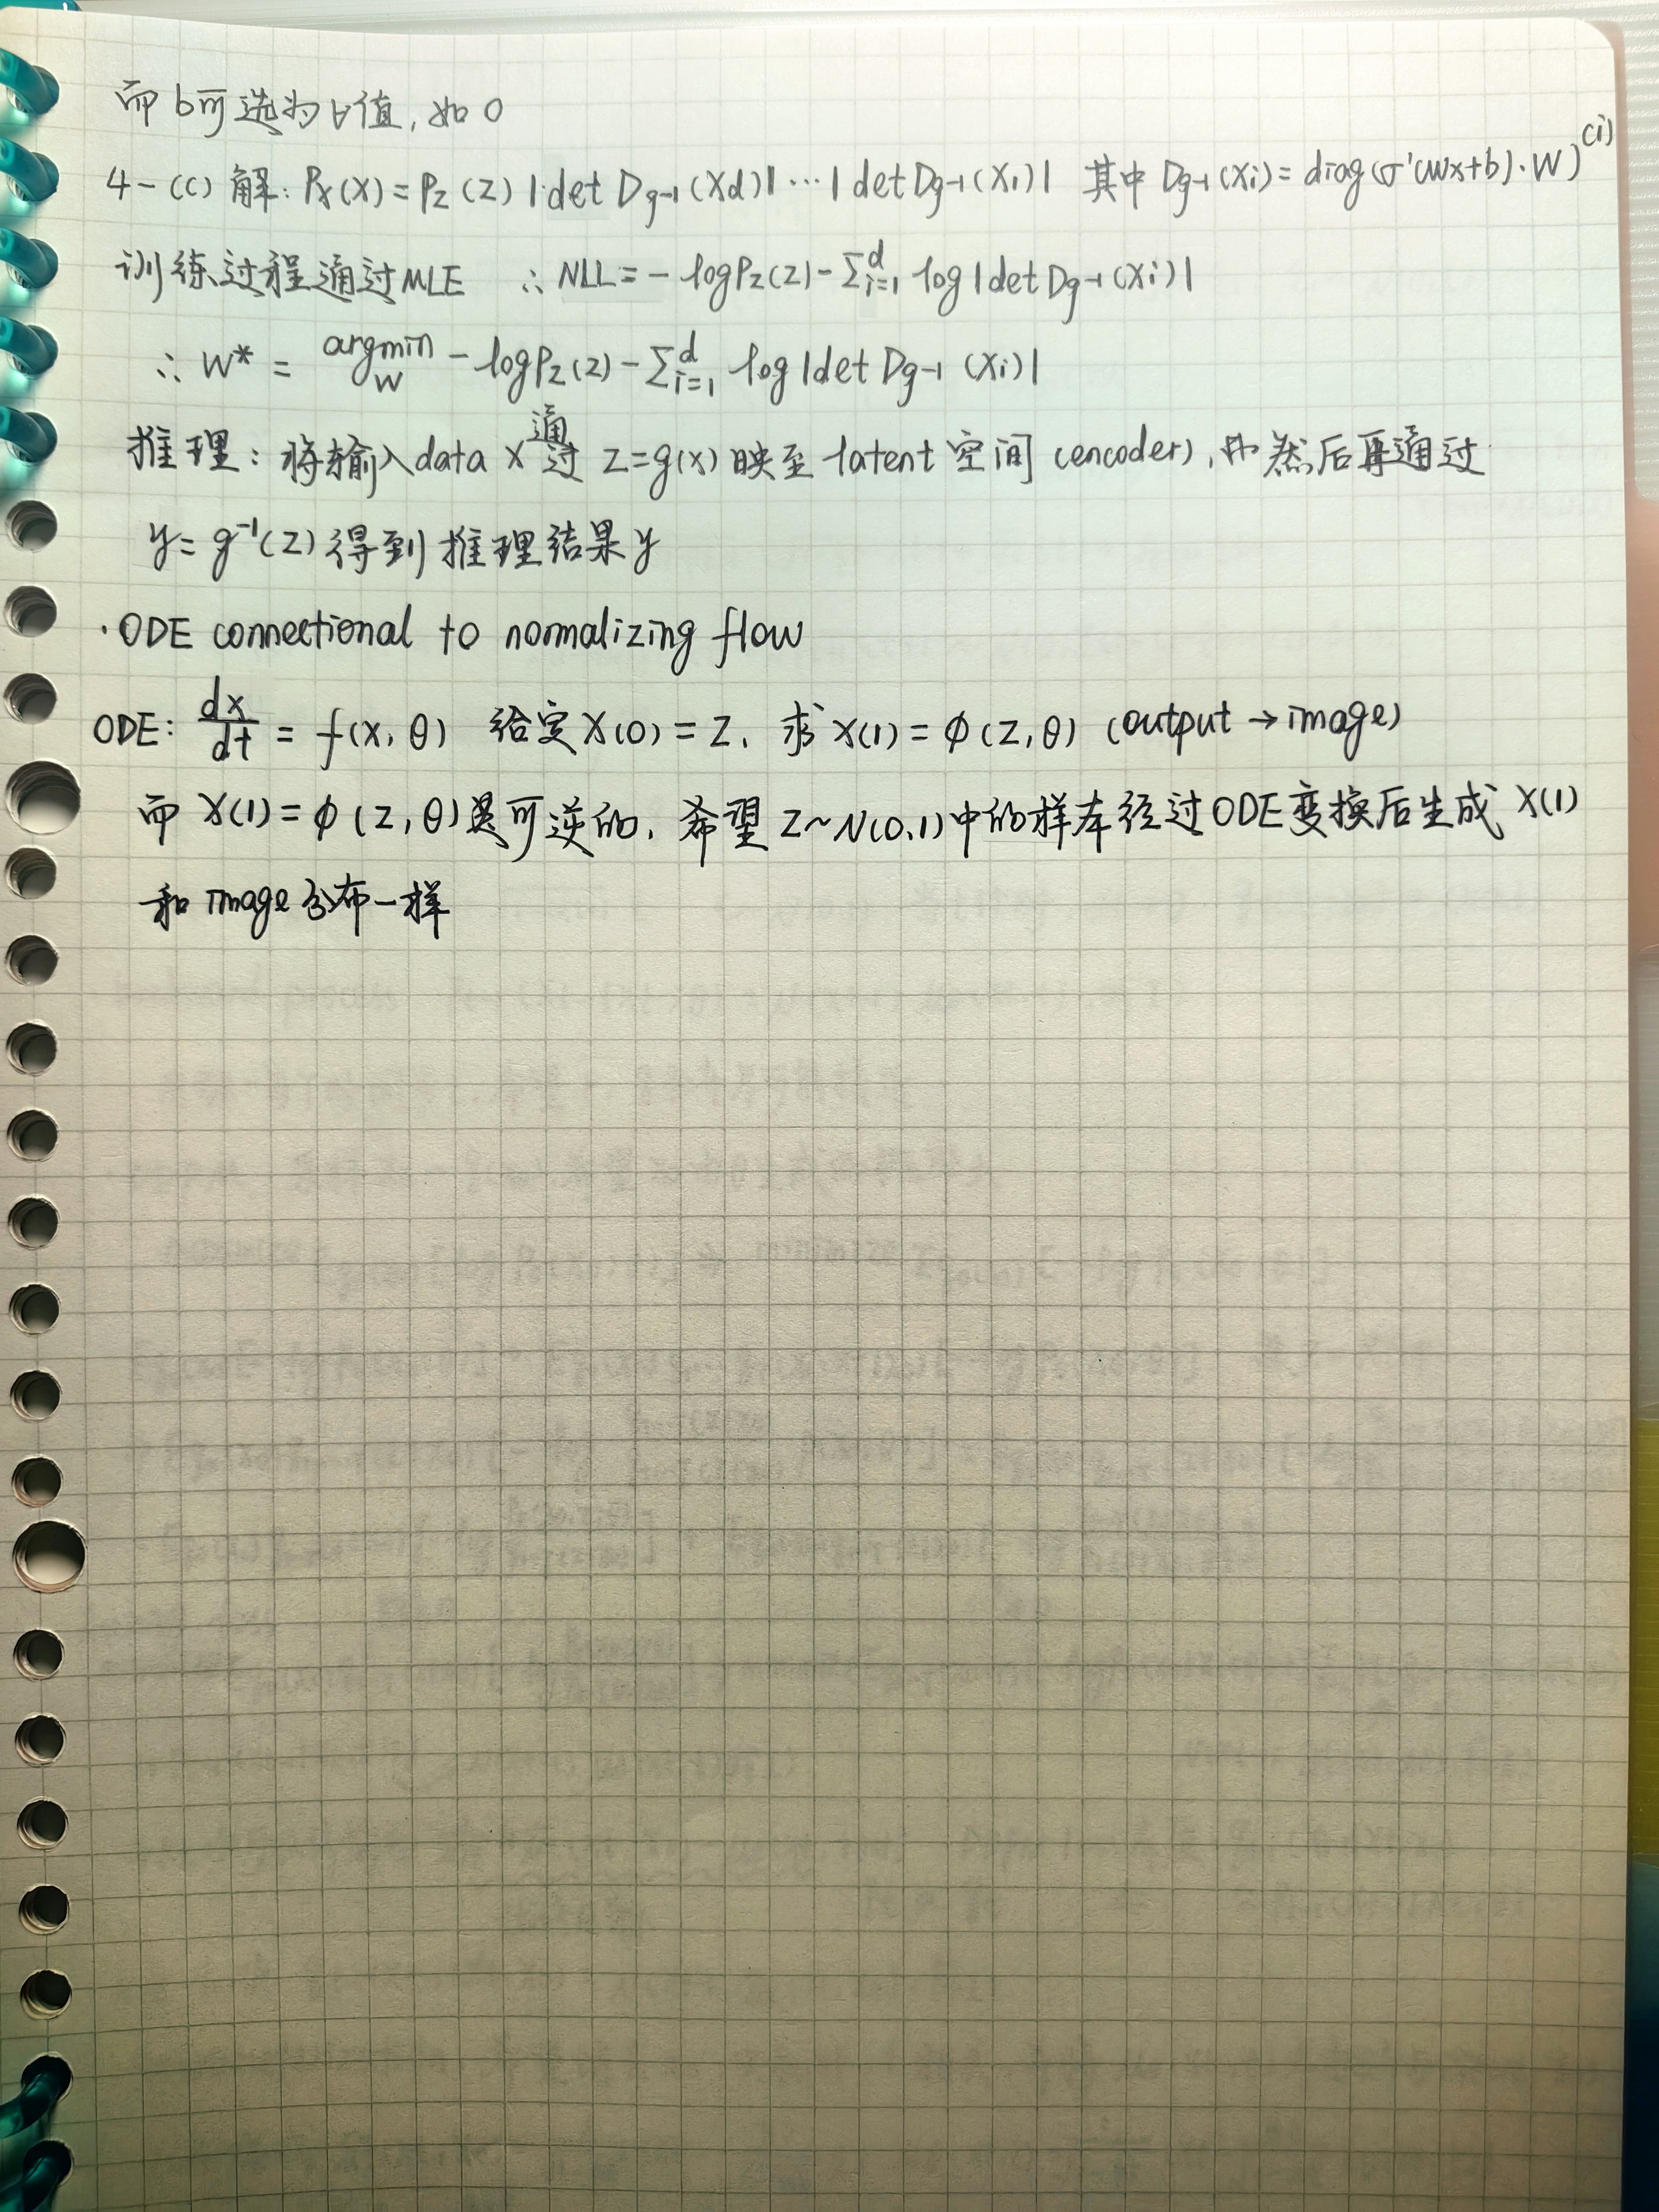 而b可选为∀值, 如0
4-(c) 解: Px(x) = Pz(z) |det Dg-1(xd)| ··· |det Dg-1(x1)| 其中 Dg-1(xi) = diag(σ'(Wx+b)·W)^(i)
训练过程通过MLE ∴ NLL = - logPz(z) - Σ_{i=1}^{d} log|det Dg-1(xi)|
∴ W* = argmin_W - logPz(z) - Σ_{i=1}^{d} log|det Dg-1(xi)|
推理: 将输入data x 通过 z=g(x) 映至 latent 空间 (encoder), 然后再通过
y = g⁻¹(z) 得到推理结果y
· ODE connectional to normalizing flow
ODE: dx/dt = f(x, θ) 给定 x(0) = z, 求 x(1) = φ(z, θ) (output → image)
而 x(1) = φ(z, θ) 是可逆的, 希望 z~N(0,1)中的样本经过ODE变换后生成 x(1)
和 image 分布一样